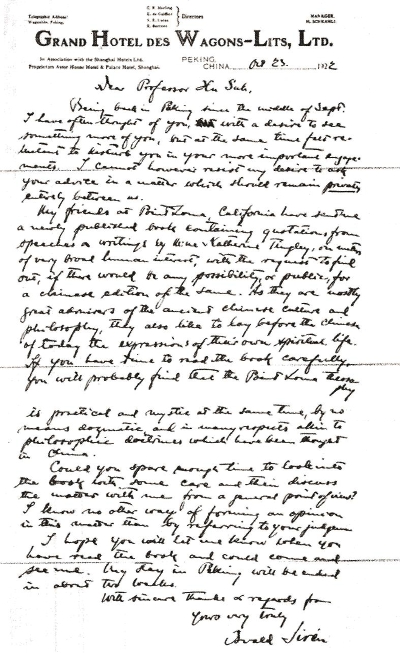 Telegraphic Address:
Wagonlits, Peking.
Directors
MANAGER.
GRAND HOTEL DES WAGONS-LITS, LTD.
In Association with the Shanghai Hotels Ltd.
Proprietors Astor House Hotel & Palace Hotel, Shanghai.
PEKING,
CHINA. Oct 23. 1922
Dear Professor Hu Suh,
Being back in Peking since the middle of Sept.
I have often thought of you, with a desire to see
something more of you, but at the same time felt re-
luctant to disturb you in your more important engage-
ments. I cannot however resist my desire to ask
your advice in a matter which should remain private,
entirely between us.
My friends at Point Loma, California have sent me
a newly published book containing quotations from
speeches & writings by Mme Katherine Tingley, on matters
of very broad human interest, with the request to find
out, if there would be any possibility, or public, for
a chinese edition of the same. As they are mostly
great admirers of the ancient chinese culture and
philosophy, they also like to lay before the Chinese
of today the expressions of their own spiritual life.
If you have time to read the book carefully,
you will probably find that the Point Loma theoso-
phy
is practical and mystic at the same time, by no
means dogmatic, and in many respects akin to
philosophic doctrines which have been thought
in China.
Could you spare enough time to look into
the book with some care and then discuss
the matter with me from a general point of view?
I know no other way of forming an opinion
in this matter than by referring to your judgement
I hope you will let me know when you
have read the book and could come and
see me. My stay in Peking will be ended
in about two weeks.
With sincere thanks & regards from
yours very truly
Osvald Sirén